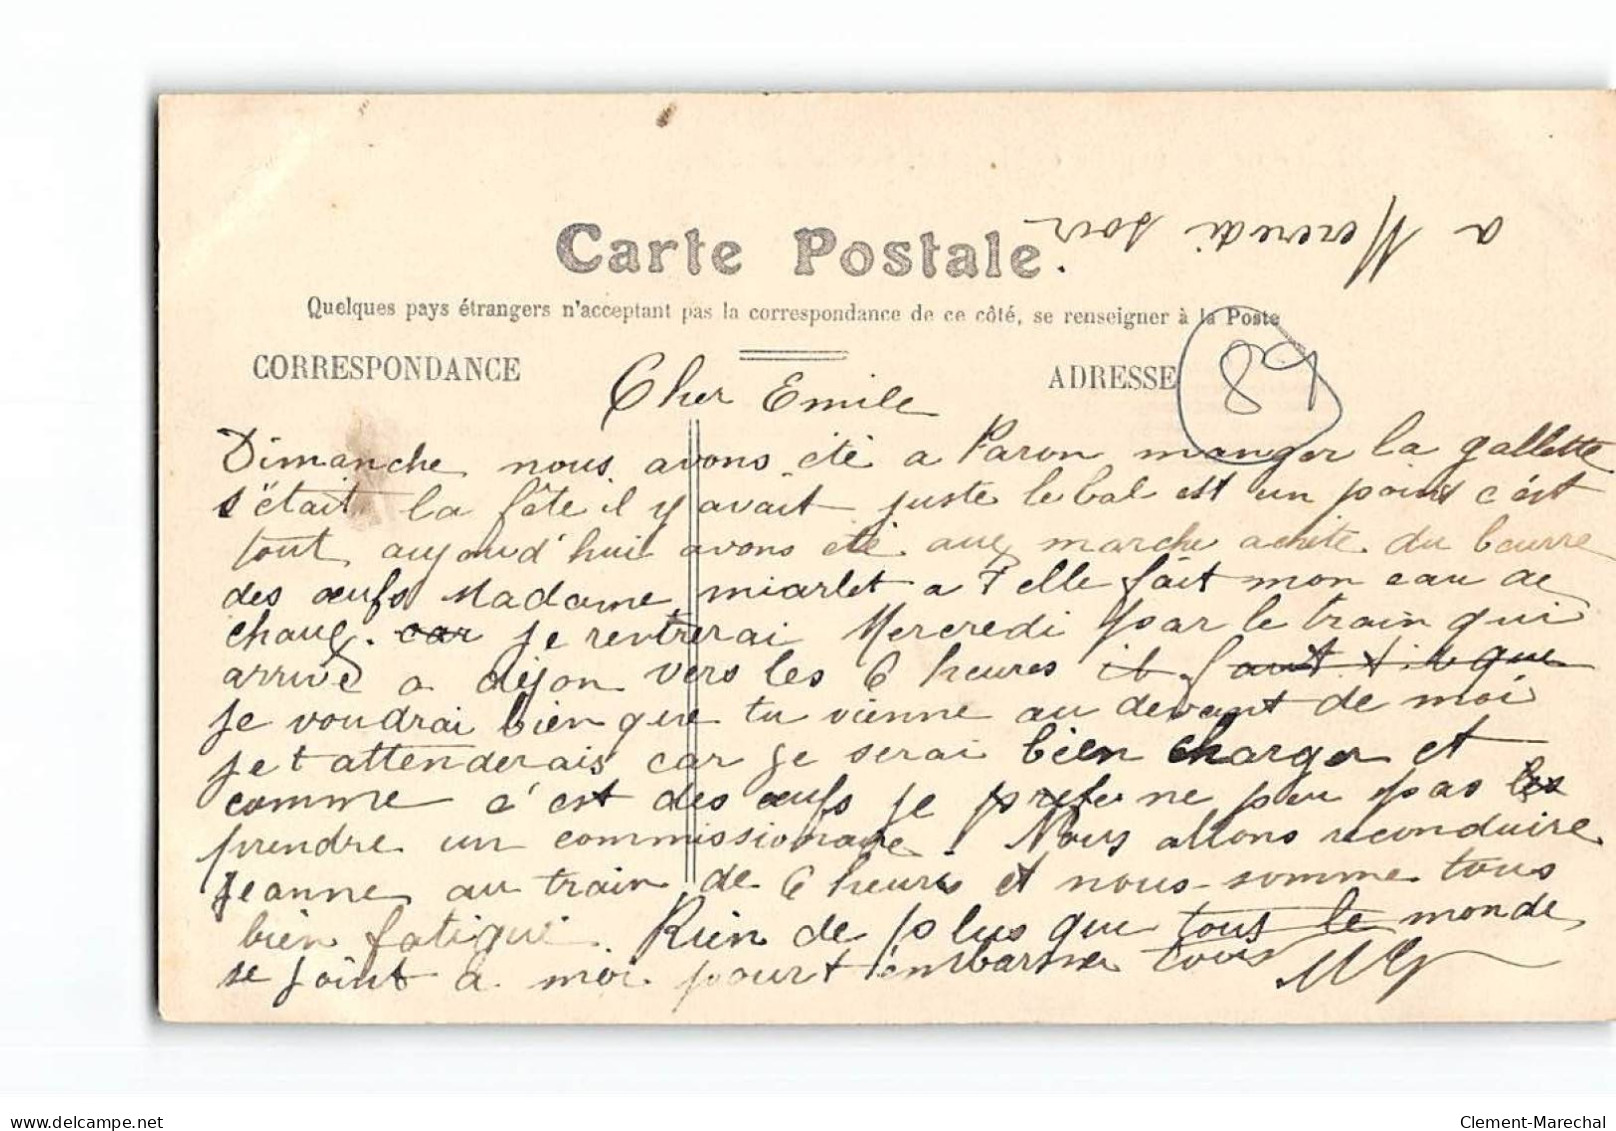 a Mercredi soir
Carte Postale.
Quelques pays étrangers n'acceptant pas la correspondance de ce côté, se renseigner à la Poste
CORRESPONDANCE
ADRESSE
89
Cher Emile
Dimanche nous avons été a Paron manger la gallette
s'était la fête il y avait juste le bal est un point c'est
tout aujourd'hui avons été aux marche achité du beurre
des œufs Madame miarlet a elle fait mon eau de
chaux. car je rentrerai Mercredi par le train qui
arrive a dijon vers les 6 heures il faut que
je voudrai bien que tu vienne au devant de moi
je t attenderais car je serai bien charger et
comme c'est des œufs je ne peu pas les
prendre un commissionaire. Nous allons reconduire
Jeanne au train de 6 heures et nous somme tous
bien fatigué. Rien de plus que tous le monde
se joint a moi pour t'embrasser tous